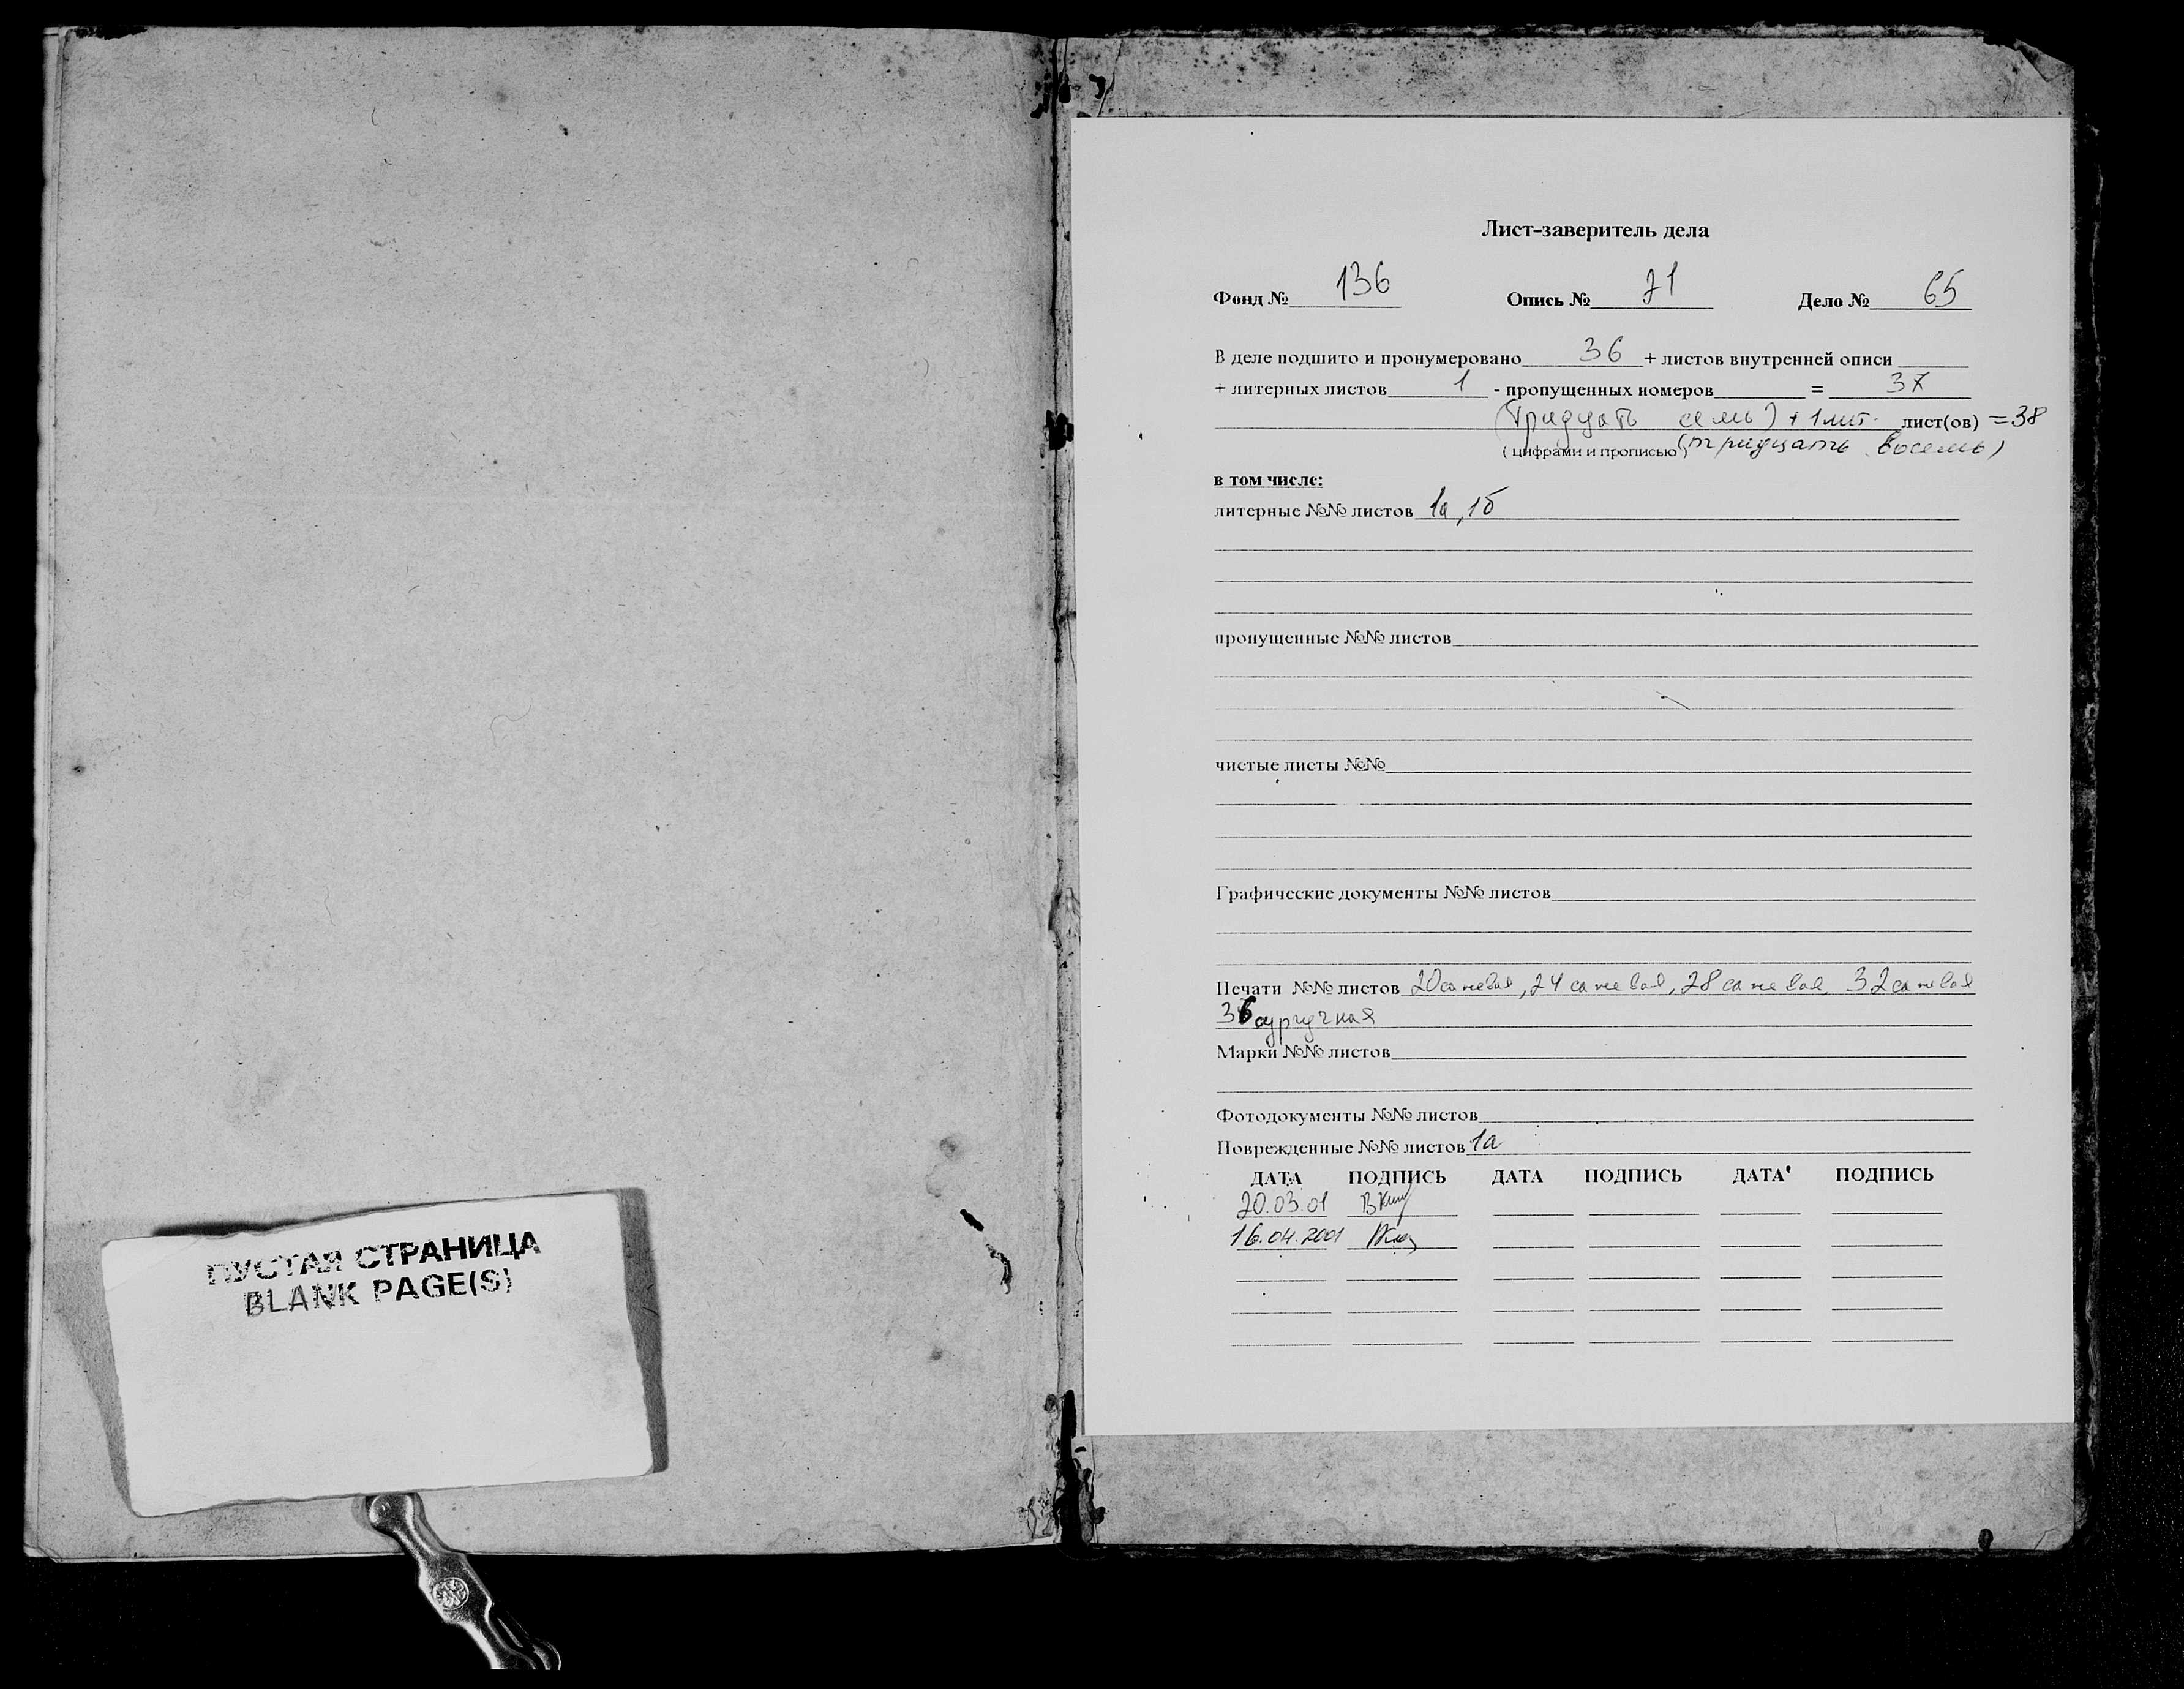 ПУСТАЯ СТРАНИЦА
BLANK PAGE(S)
Лист-заверитель дела
Фонд № 136 Опись № 71 Дело № 65
В деле подшито и пронумеровано 36 + листов внутренней описи
+ литерных листов 1 - пропущенных номеров = 37
(тридцать семь) + 1 лит. лист(ов) = 38
( цифрами и прописью ) (тридцать восемь)
в том числе:
литерные №№ листов 1а, 1б
пропущенные №№ листов
чистые листы №№
Графические документы №№ листов
Печати №№ листов 20 сажевая, 24 сажевая, 28 сажевая 32 сажевая
36 сургучная
Марки №№ листов
Фотодокументы №№ листов
Поврежденные №№ листов 1а
ДАТА ПОДПИСЬ ДАТА ПОДПИСЬ ДАТА ПОДПИСЬ
20.03.01
16.04.2001